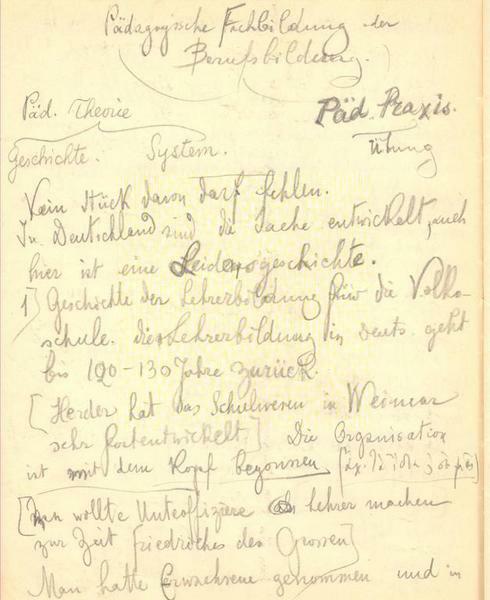 Pädagogische Fachbildung der
Berufsbildung.
Päd. Theorie Päd. Praxis.
Geschichte. System. Übung
Kein Stück davon darf fehlen.
In Deutschland sind die Sache entwickelt, auch
hier ist eine Leidensgeschichte.
1) Geschichte der Lehrerbildung für die Volks-
schule. die Lehrerbildung in Deuts. geht
bis 120-130 Jahre zurück.
[Herder hat das Schulwesen in Weimar
sehr fortentwickelt] Die Organisation
ist mit dem Kopf begonnen
[Man wollte Unteroffiziere Lehrer machen
zur Zeit Friedriches des Grossen]
Man hatte Erwachsene genommen und in